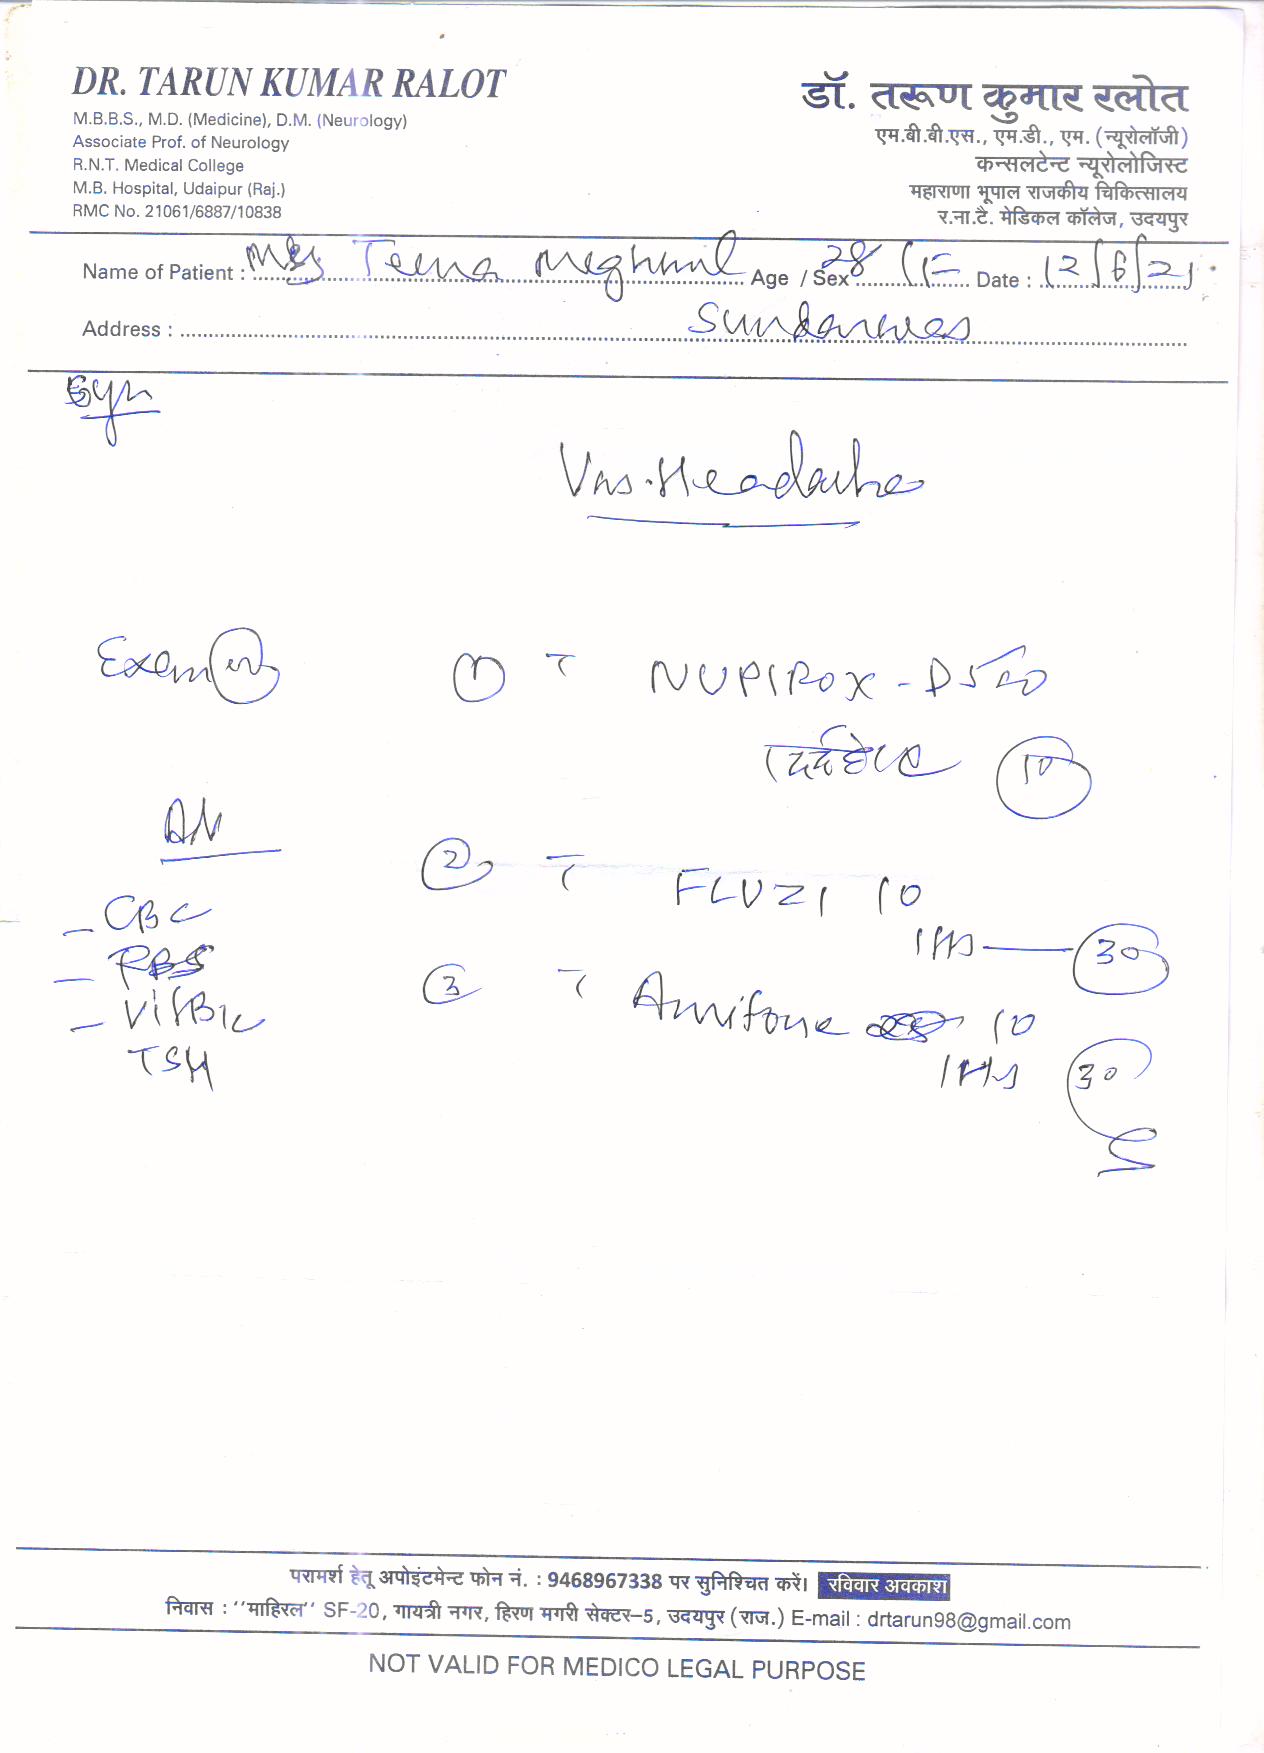 DR. TARUN KUMAR RALOT
M.B.B.S., M.D. (Medicine), D.M. (Neurology)
Associate Prof. of Neurology
R.N.T. Medical College
M.B. Hospital, Udaipur (Raj.)
RMC No. 21061/6887/10838
डॉ. तरूण कुमार रलोत
एम.बी.बी.एस., एम.डी., एम. (न्यूरोलॉजी)
कन्सलटेन्ट न्यूरोलोजिस्ट
महाराणा भूपाल राजकीय चिकित्सालय
र.ना.टै. मेडिकल कॉलेज, उदयपुर
Name of Patient : Teena Age / Sex 28 / F Date : 12/6/21
Address :
Vas. Headache
Exam
1 T NUPIROX-D 500
10
2 T FLUZI 10
1 HS 30
3 T Amitone 10
1 HS 30
- CBC
- RBS
- Vit B12
TSH
परामर्श हेतू अपोइंटमेन्ट फोन नं. : 9468967338 पर सुनिश्चित करें। रविवार अवकाश
निवास : ''माहिरल'' SF-20, गायत्री नगर, हिरण मगरी सेक्टर–5, उदयपुर (राज.) E-mail : drtarun98@gmail.com
NOT VALID FOR MEDICO LEGAL PURPOSE